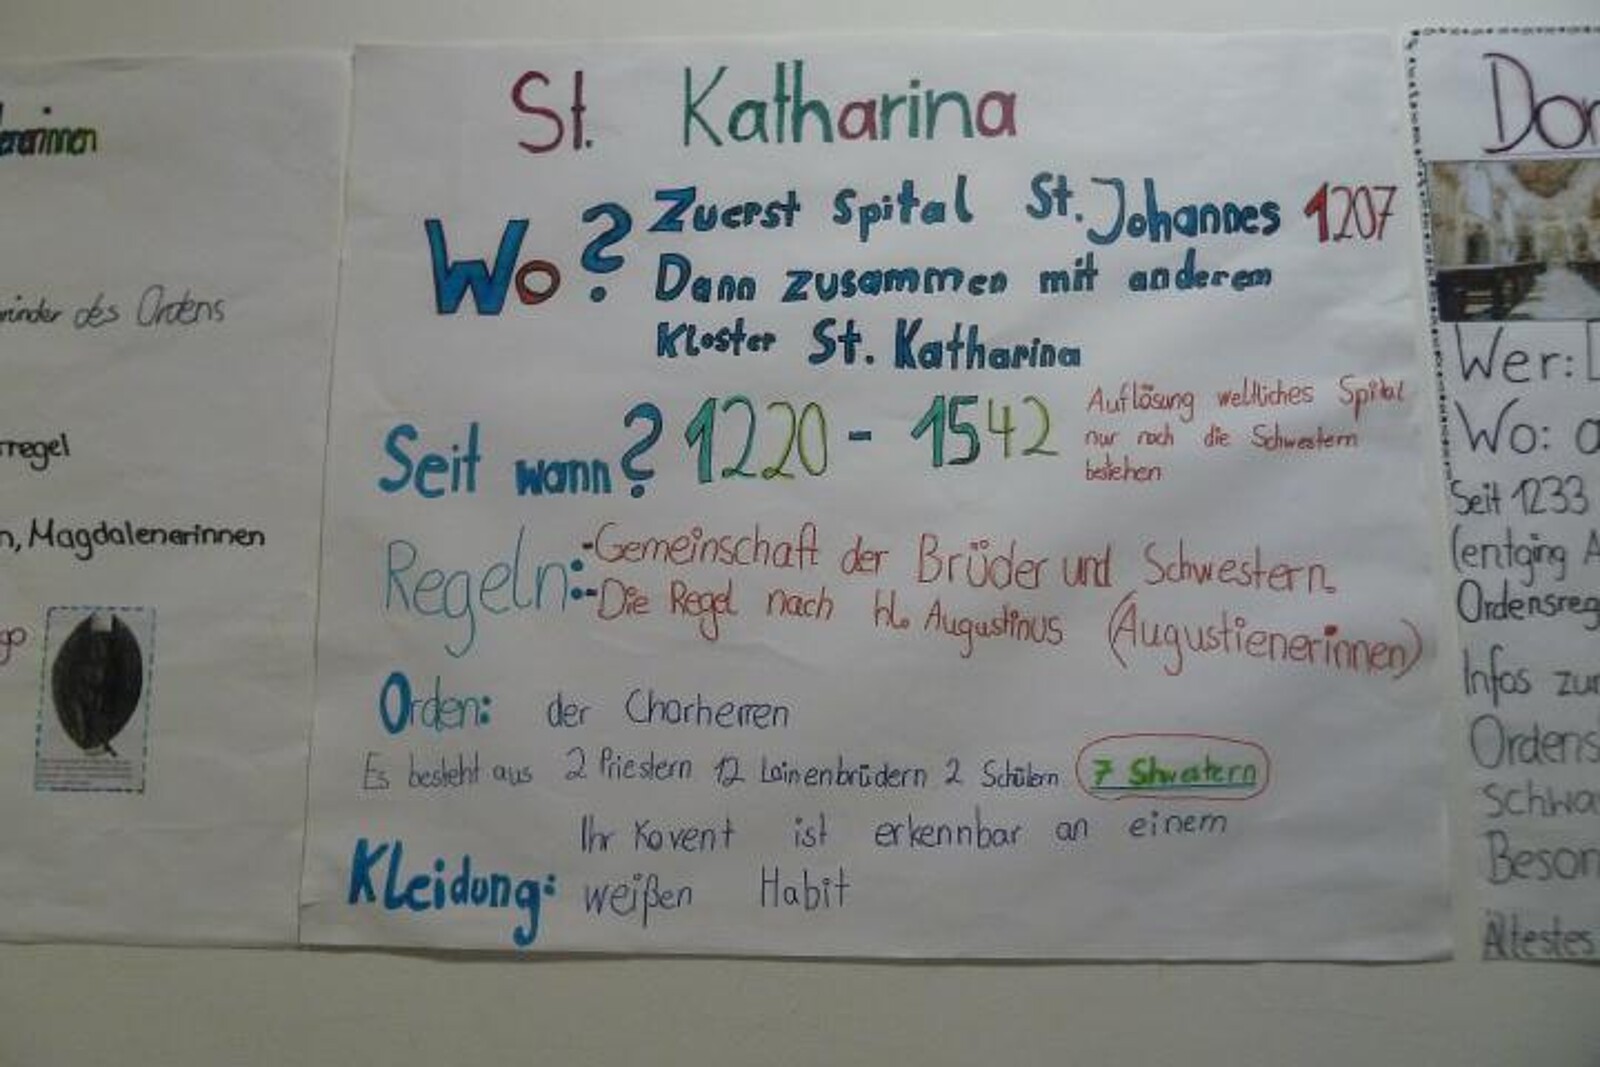 St. Katharina
Wo? Zuerst Spital St. Johannes 1207
Dann zusammen mit anderem
Kloster St. Katharina
Seit wann? 1220 - 1542 Auflösung weltliches Spital
nur noch die Schwestern
bestehen
Regeln: -Gemeinschaft der Brüder und Schwestern.
-Die Regel nach hl. Augustinus (Augustienerinnen)
Orden: der Chorherren
Es besteht aus 2 Priestern 12 Lainenbrüdern 2 Schülern 7 Shwestern
Ihr Kovent ist erkennbar an einem
Kleidung: weißen Habit
des Ordens
rregel
n, Magdalenerinnen
go
Dom
Wer:
Wo: a
Seit 1233
(entging A
Ordensreg
Infos zur
Ordens
schwa
Beson
Ältestes